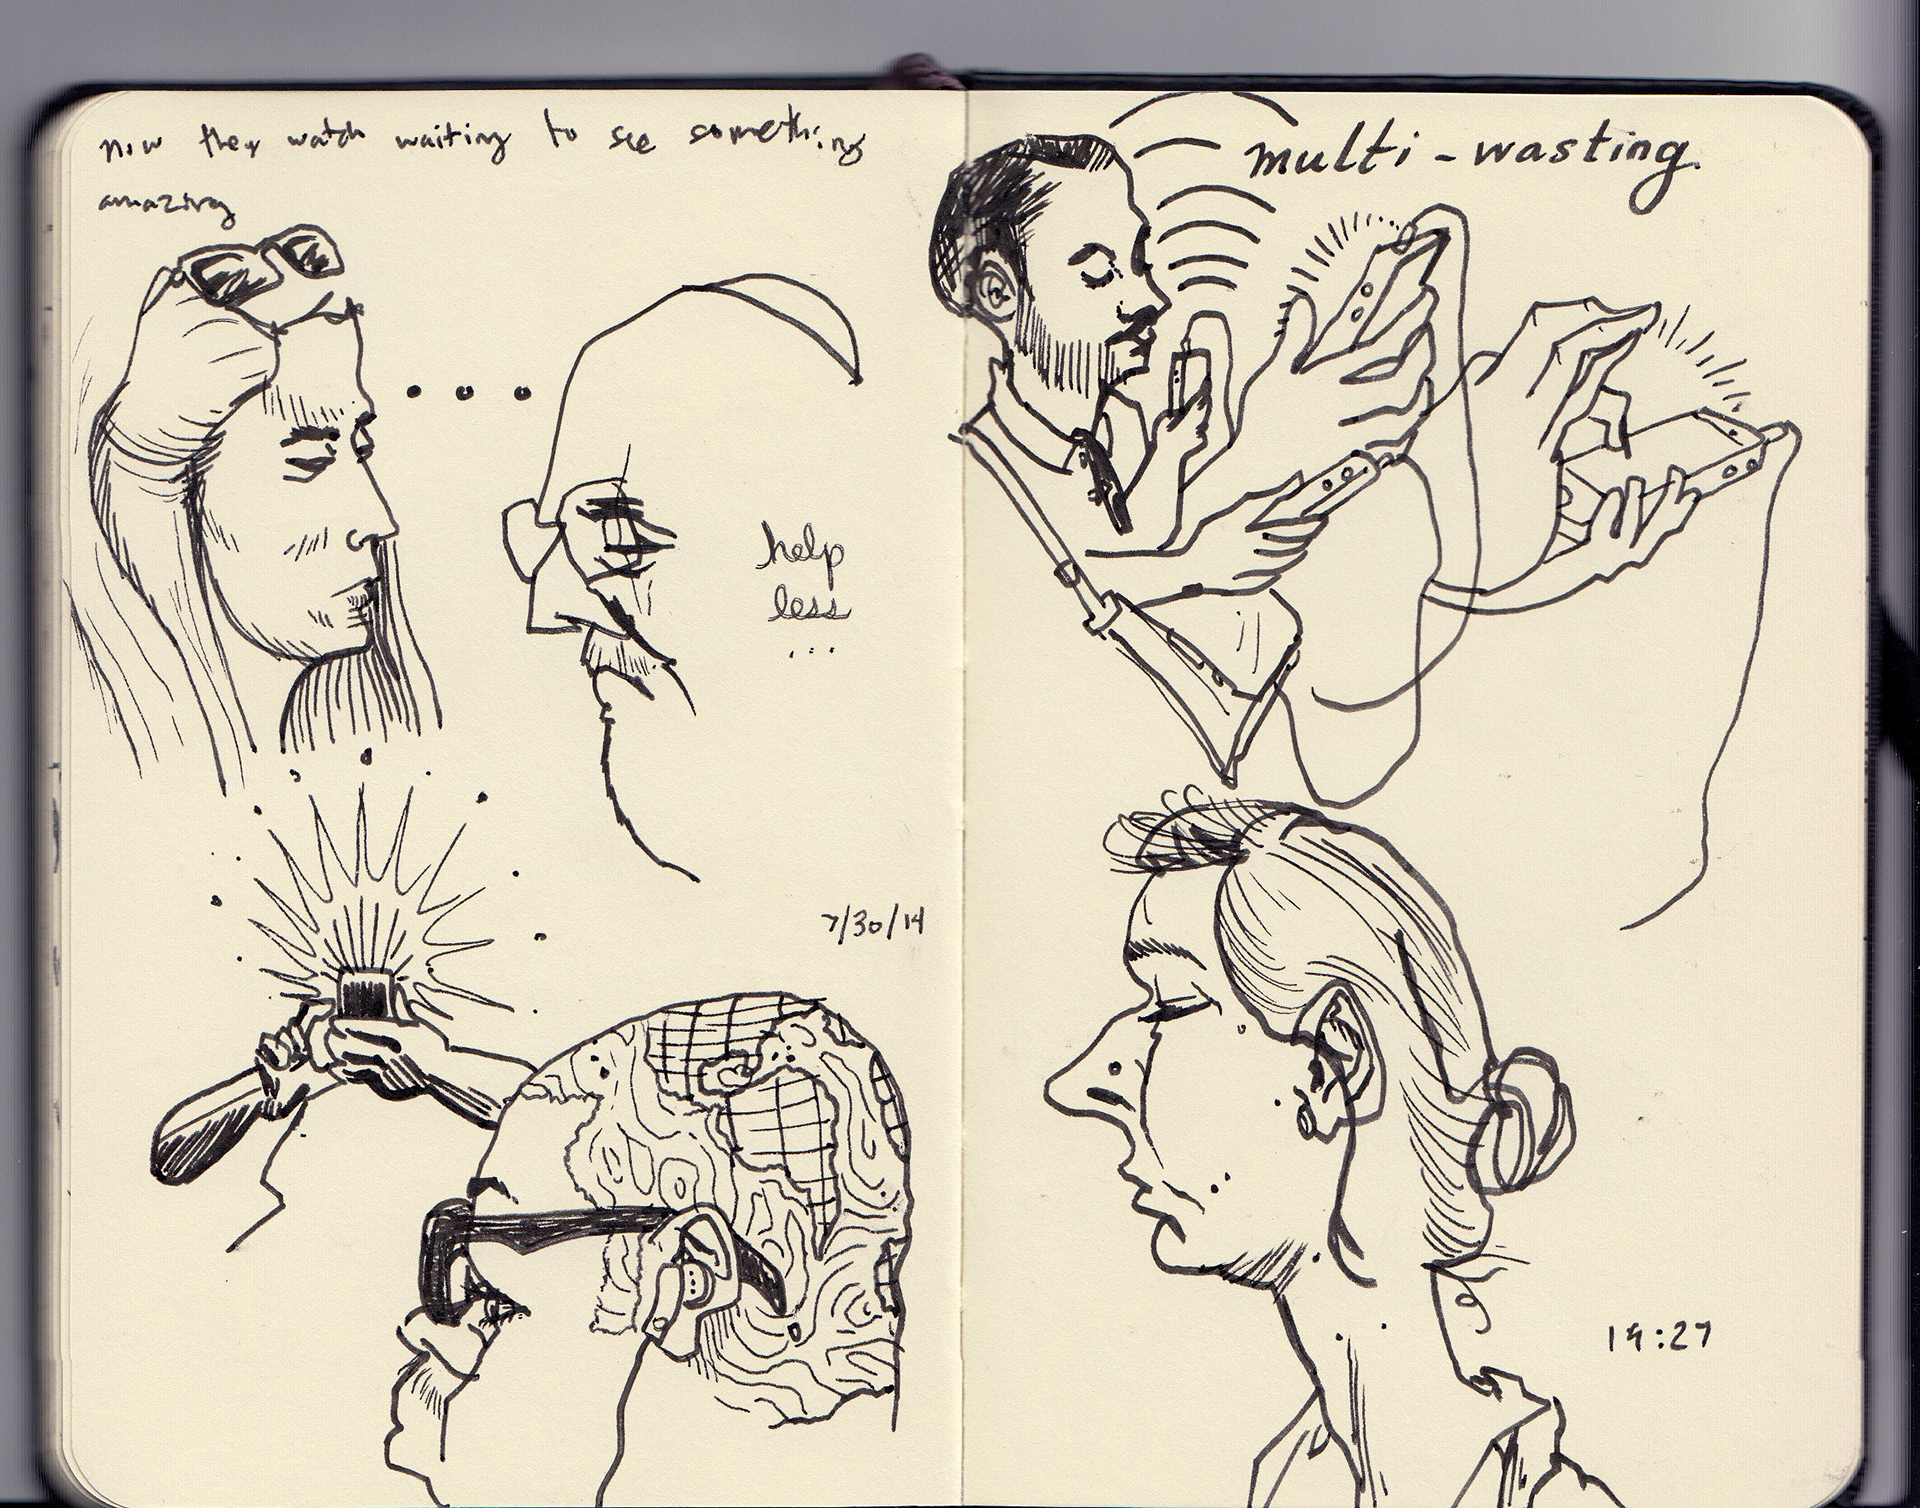 now they watch waiting to see something
amazing
help
less
...
7/30/14
multi-wasting
19:27